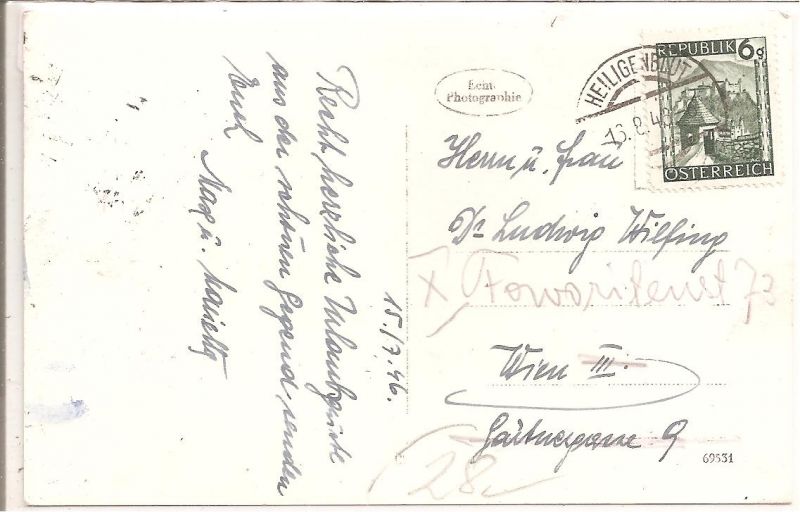 15./7.46.
Recht herzliche Urlaubsgrüße
aus der schönen Gegend senden
Euch
Max u.
Echt
Photographie
HEILIGENBLUT
13.8.46
REPUBLIK 6g
ÖSTERREICH
Herrn u. Frau
Dr Ludwig Wilfing
X Favoritenst 73
Wien III.
Gärtnergasse 9
28
69531